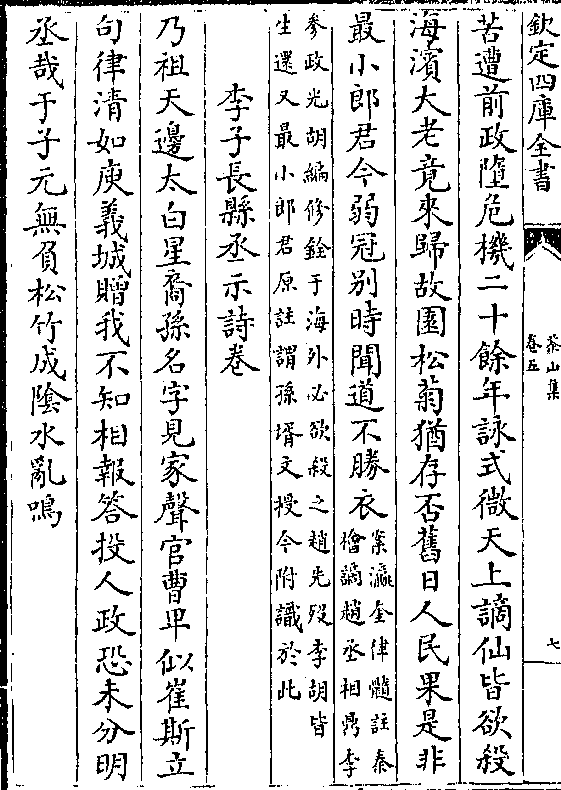 欽定四庫全書
茶山集
卷五
七
苦遭前政墮危機二十餘年詠式微天上謫仙皆欲殺
海濱大老竟來歸故園松菊猶存否舊日人民果是非
最小郎君今弱冠别時聞道不勝衣
案瀛奎律髓註秦
檜謫趙丞相鼎李
參政光胡編修銓于海外必欲殺之趙先殁李胡皆
生還又最小郎君原註謂孫壻文授今附識於此
李子長縣丞示詩卷
乃祖天邊太白星裔孫名字見家聲官曹卑似崔斯立
句律清如庾義城贈我不知相報答投人政恐未分明
丞哉于子元無負松竹成陰水亂鳴